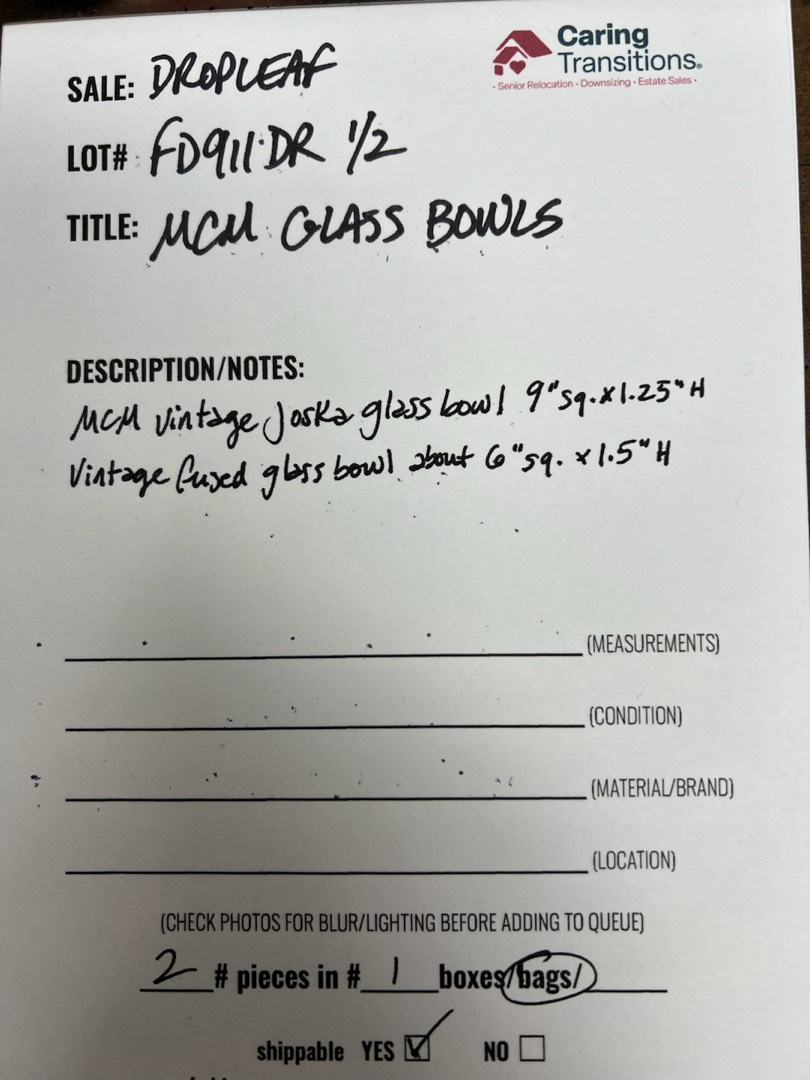 Caring
Transitions®
• Senior Relocation • Downsizing • Estate Sales •
SALE: DROPLEAF
LOT# FD911·DR 1/2
TITLE: MCM GLASS BOWLS
DESCRIPTION/NOTES:
MCM vintage Joska glass bowl 9"sq. x 1.25"H
Vintage fused glass bowl about 6"sq. x 1.5"H
(MEASUREMENTS)
(CONDITION)
(MATERIAL/BRAND)
(LOCATION)
(CHECK PHOTOS FOR BLUR/LIGHTING BEFORE ADDING TO QUEUE)
2 # pieces in # 1 boxes/bags/
shippable YES ☑ NO ☐